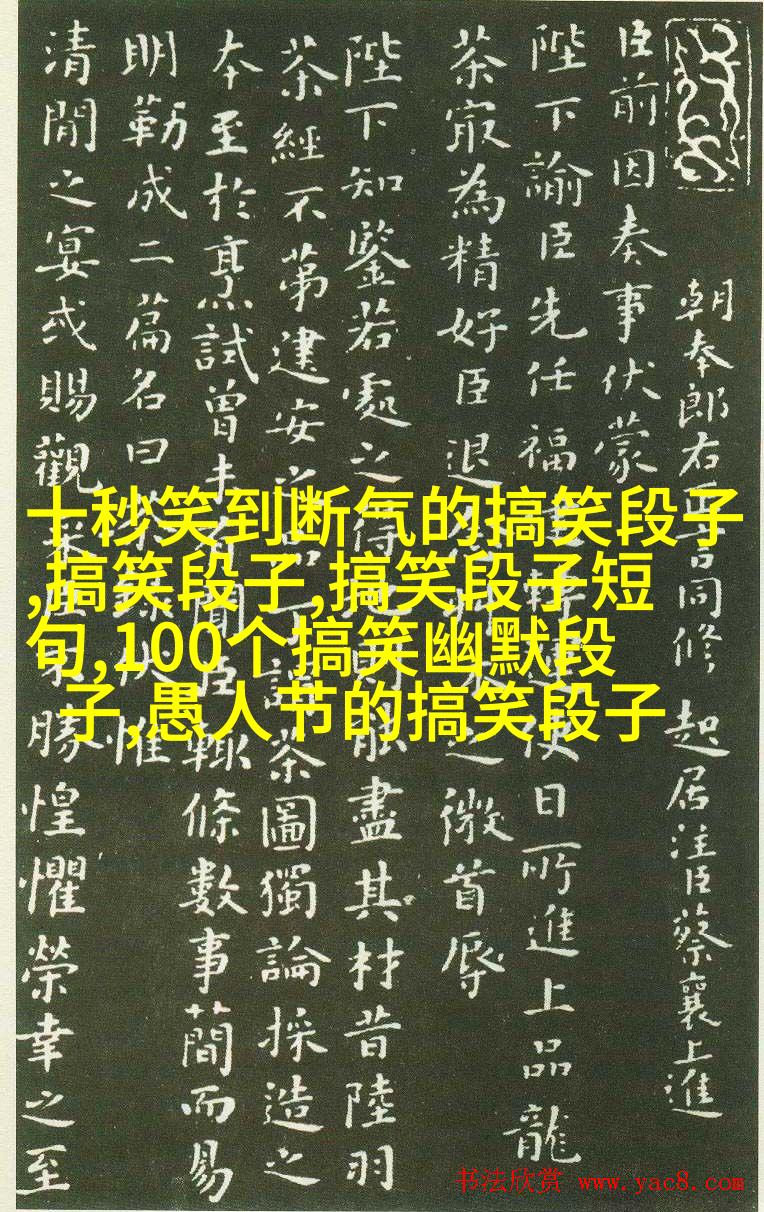 十秒笑到断气的搞笑段子
,搞笑段子,搞笑段子短
句,100个搞笑幽默段
子,愚人节的搞笑段子
朝奉郎右正言同修起居注臣蔡襄上進
臣前因奏事伏蒙
陛下諭臣先任福轉運使日所進上品龍
茶㝡為精好臣退之微首辱
陛下知鑒若處之得能盡其材昔陸羽
茶經不第建安之品謂茶圖獨論採造之
本至於烹試曾未有聞臣輒條數事簡而易
明勒成二篇名曰惟
清閒之宴或賜觀采勝惶懼榮幸之至
书法欣赏 www.yac8.com